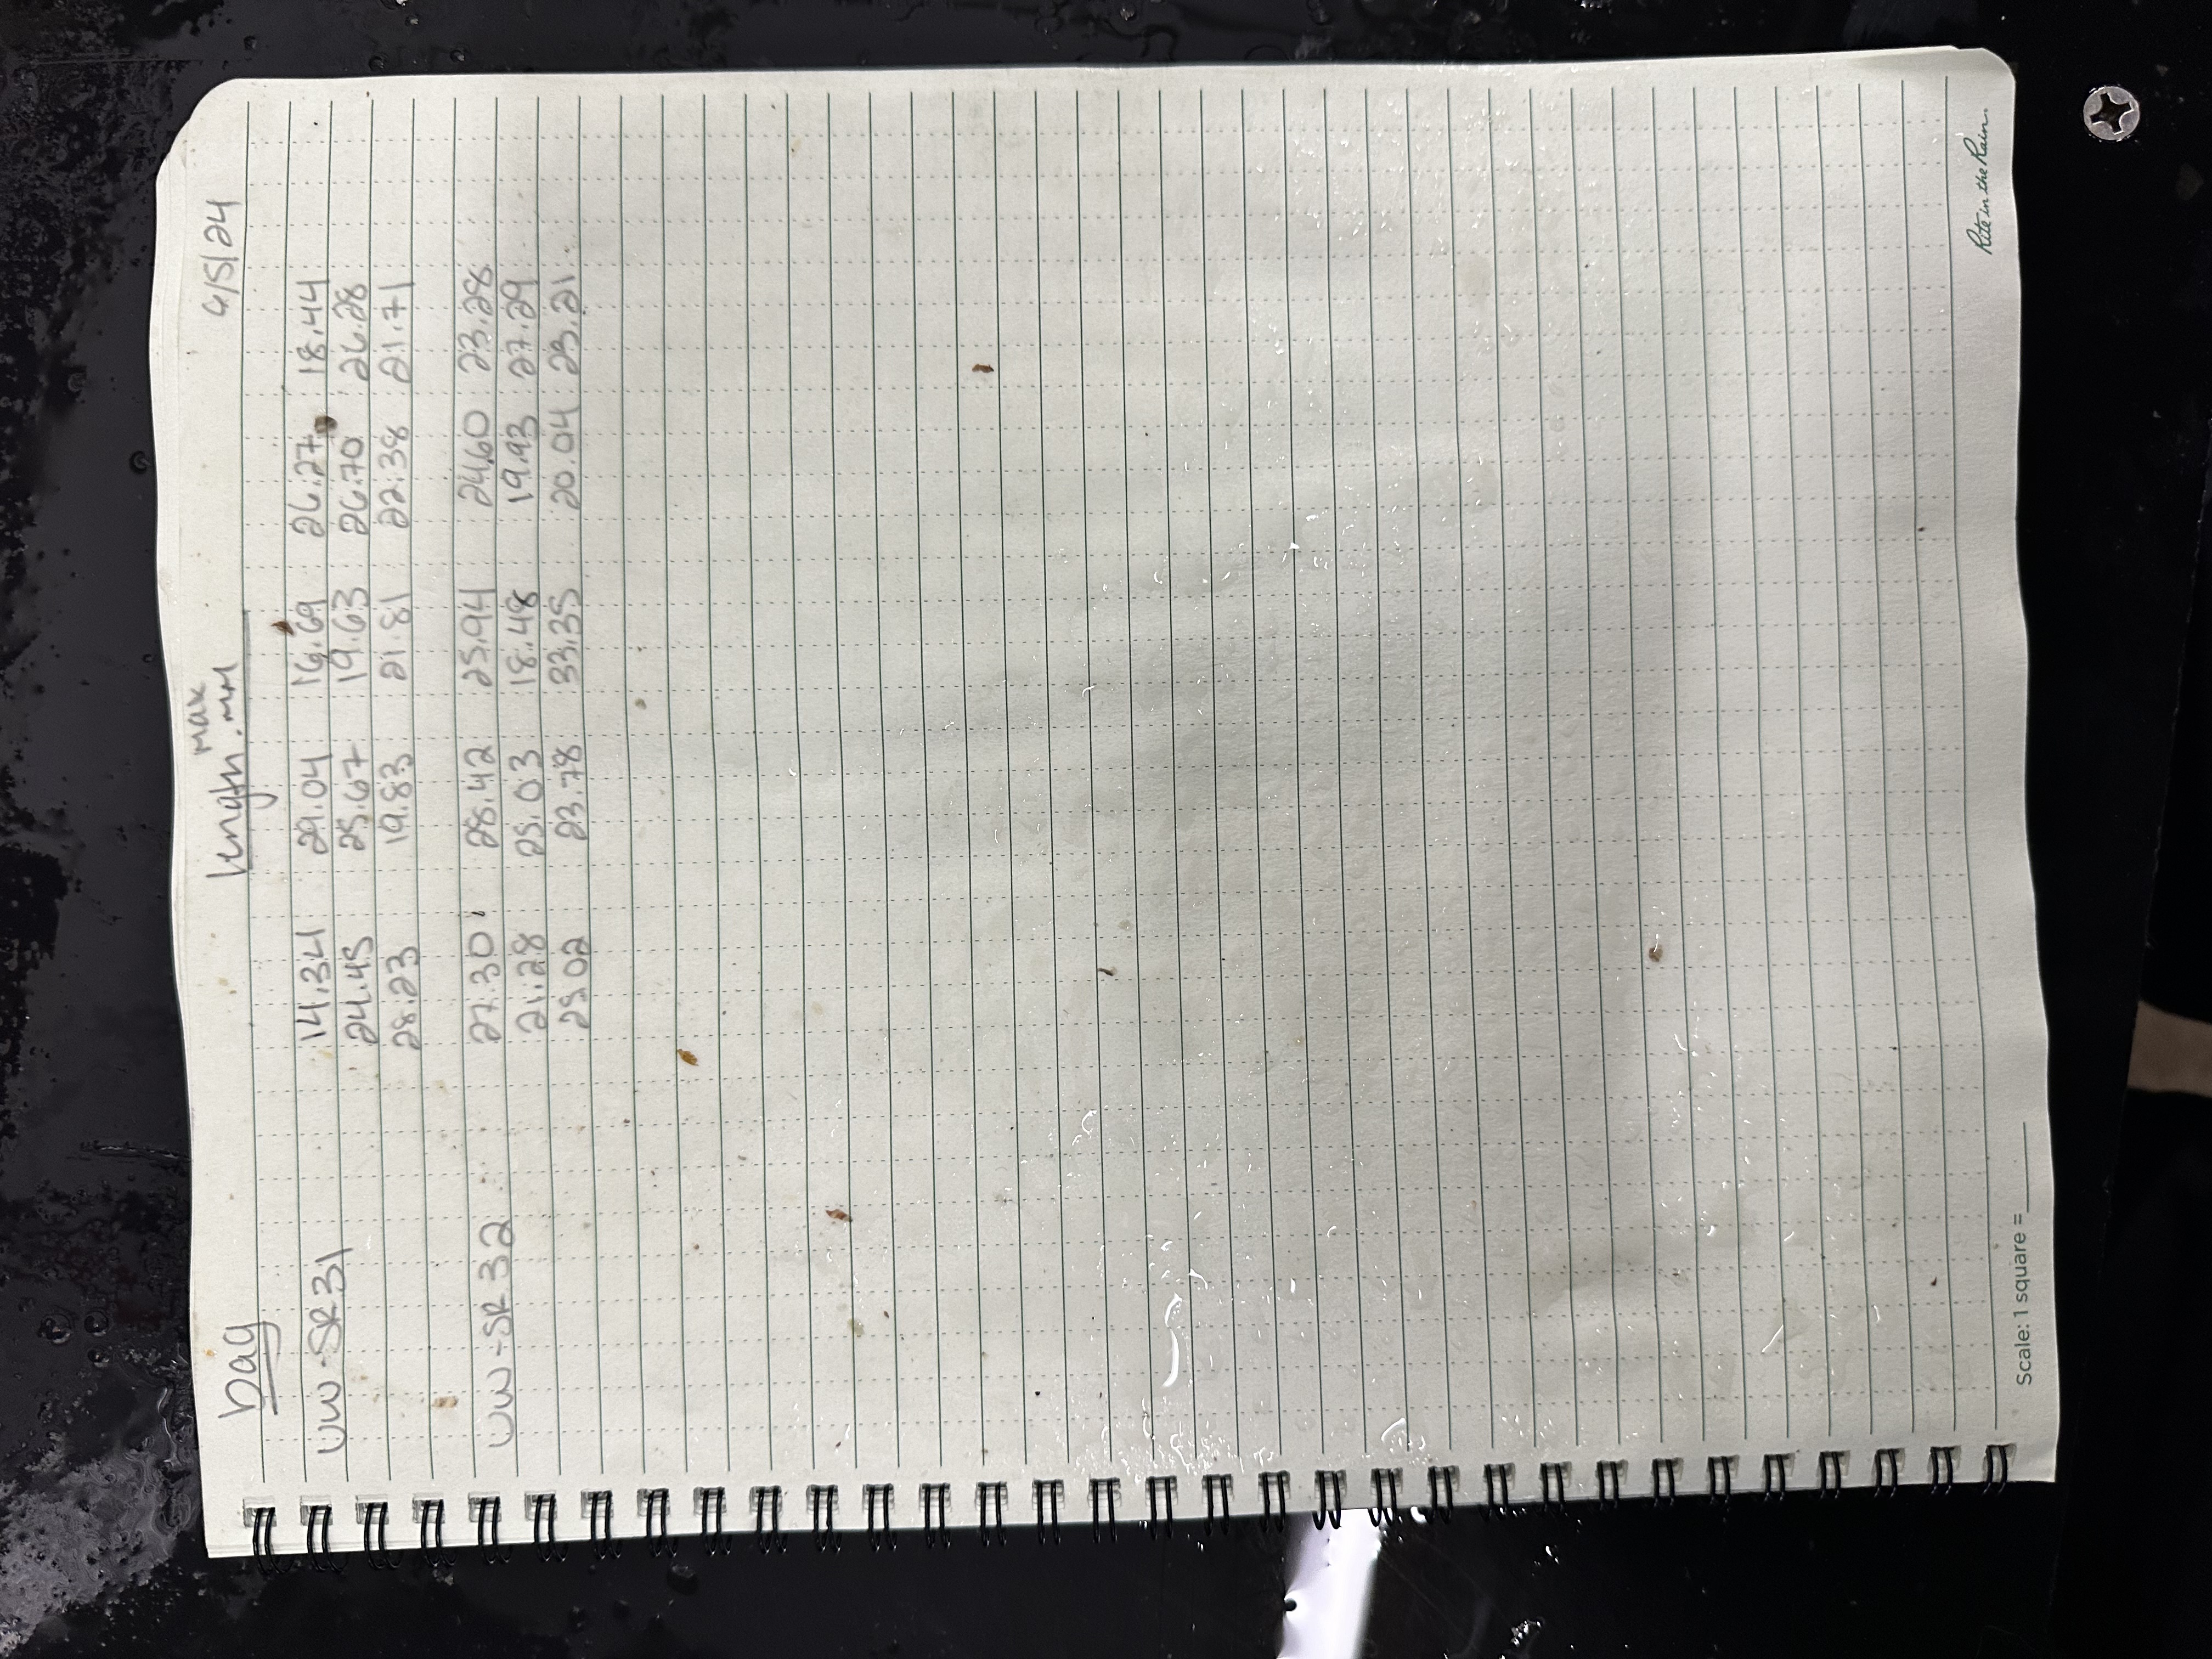 bag length max mm 6/5/24
UW-SR31 14.34 29.04 16.69 26.27 18.44
24.45 25.67 19.63 26.70 26.28
28.23 19.83 21.81 22.38 21.71
UW-SR32 27.30 28.42 25.94 24.60 23.28
21.28 25.03 18.48 19.93 27.29
25.02 23.78 33.35 20.04 23.21
Rite in the Rain.
Scale: 1 square =